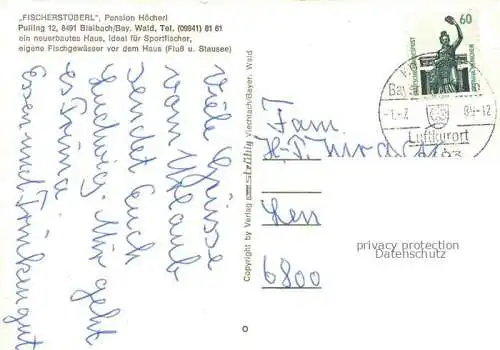 „FISCHERSTÜBERL", Pension Höcherl
Pulling 12, 8491 Blaibach/Bay. Wald, Tel. (09941) 81 61
ein neuerbautes Haus, ideal für Sportfischer,
eigene Fischgewässer vor dem Haus (Fluß u. Stausee)
Viele Grüsse
vom Urlaub
sendet Euch
Ludwig. Mir geht
es Prima
Essen und Trinken gut
Copyright by Verlag Viechtach/Bayer. Wald
Fam.
6800
60
DEUTSCHE BUNDESPOST
BAVARIA MÜNCHEN
Bay
89-12
Luftkurort
privacy protection
Datenschutz